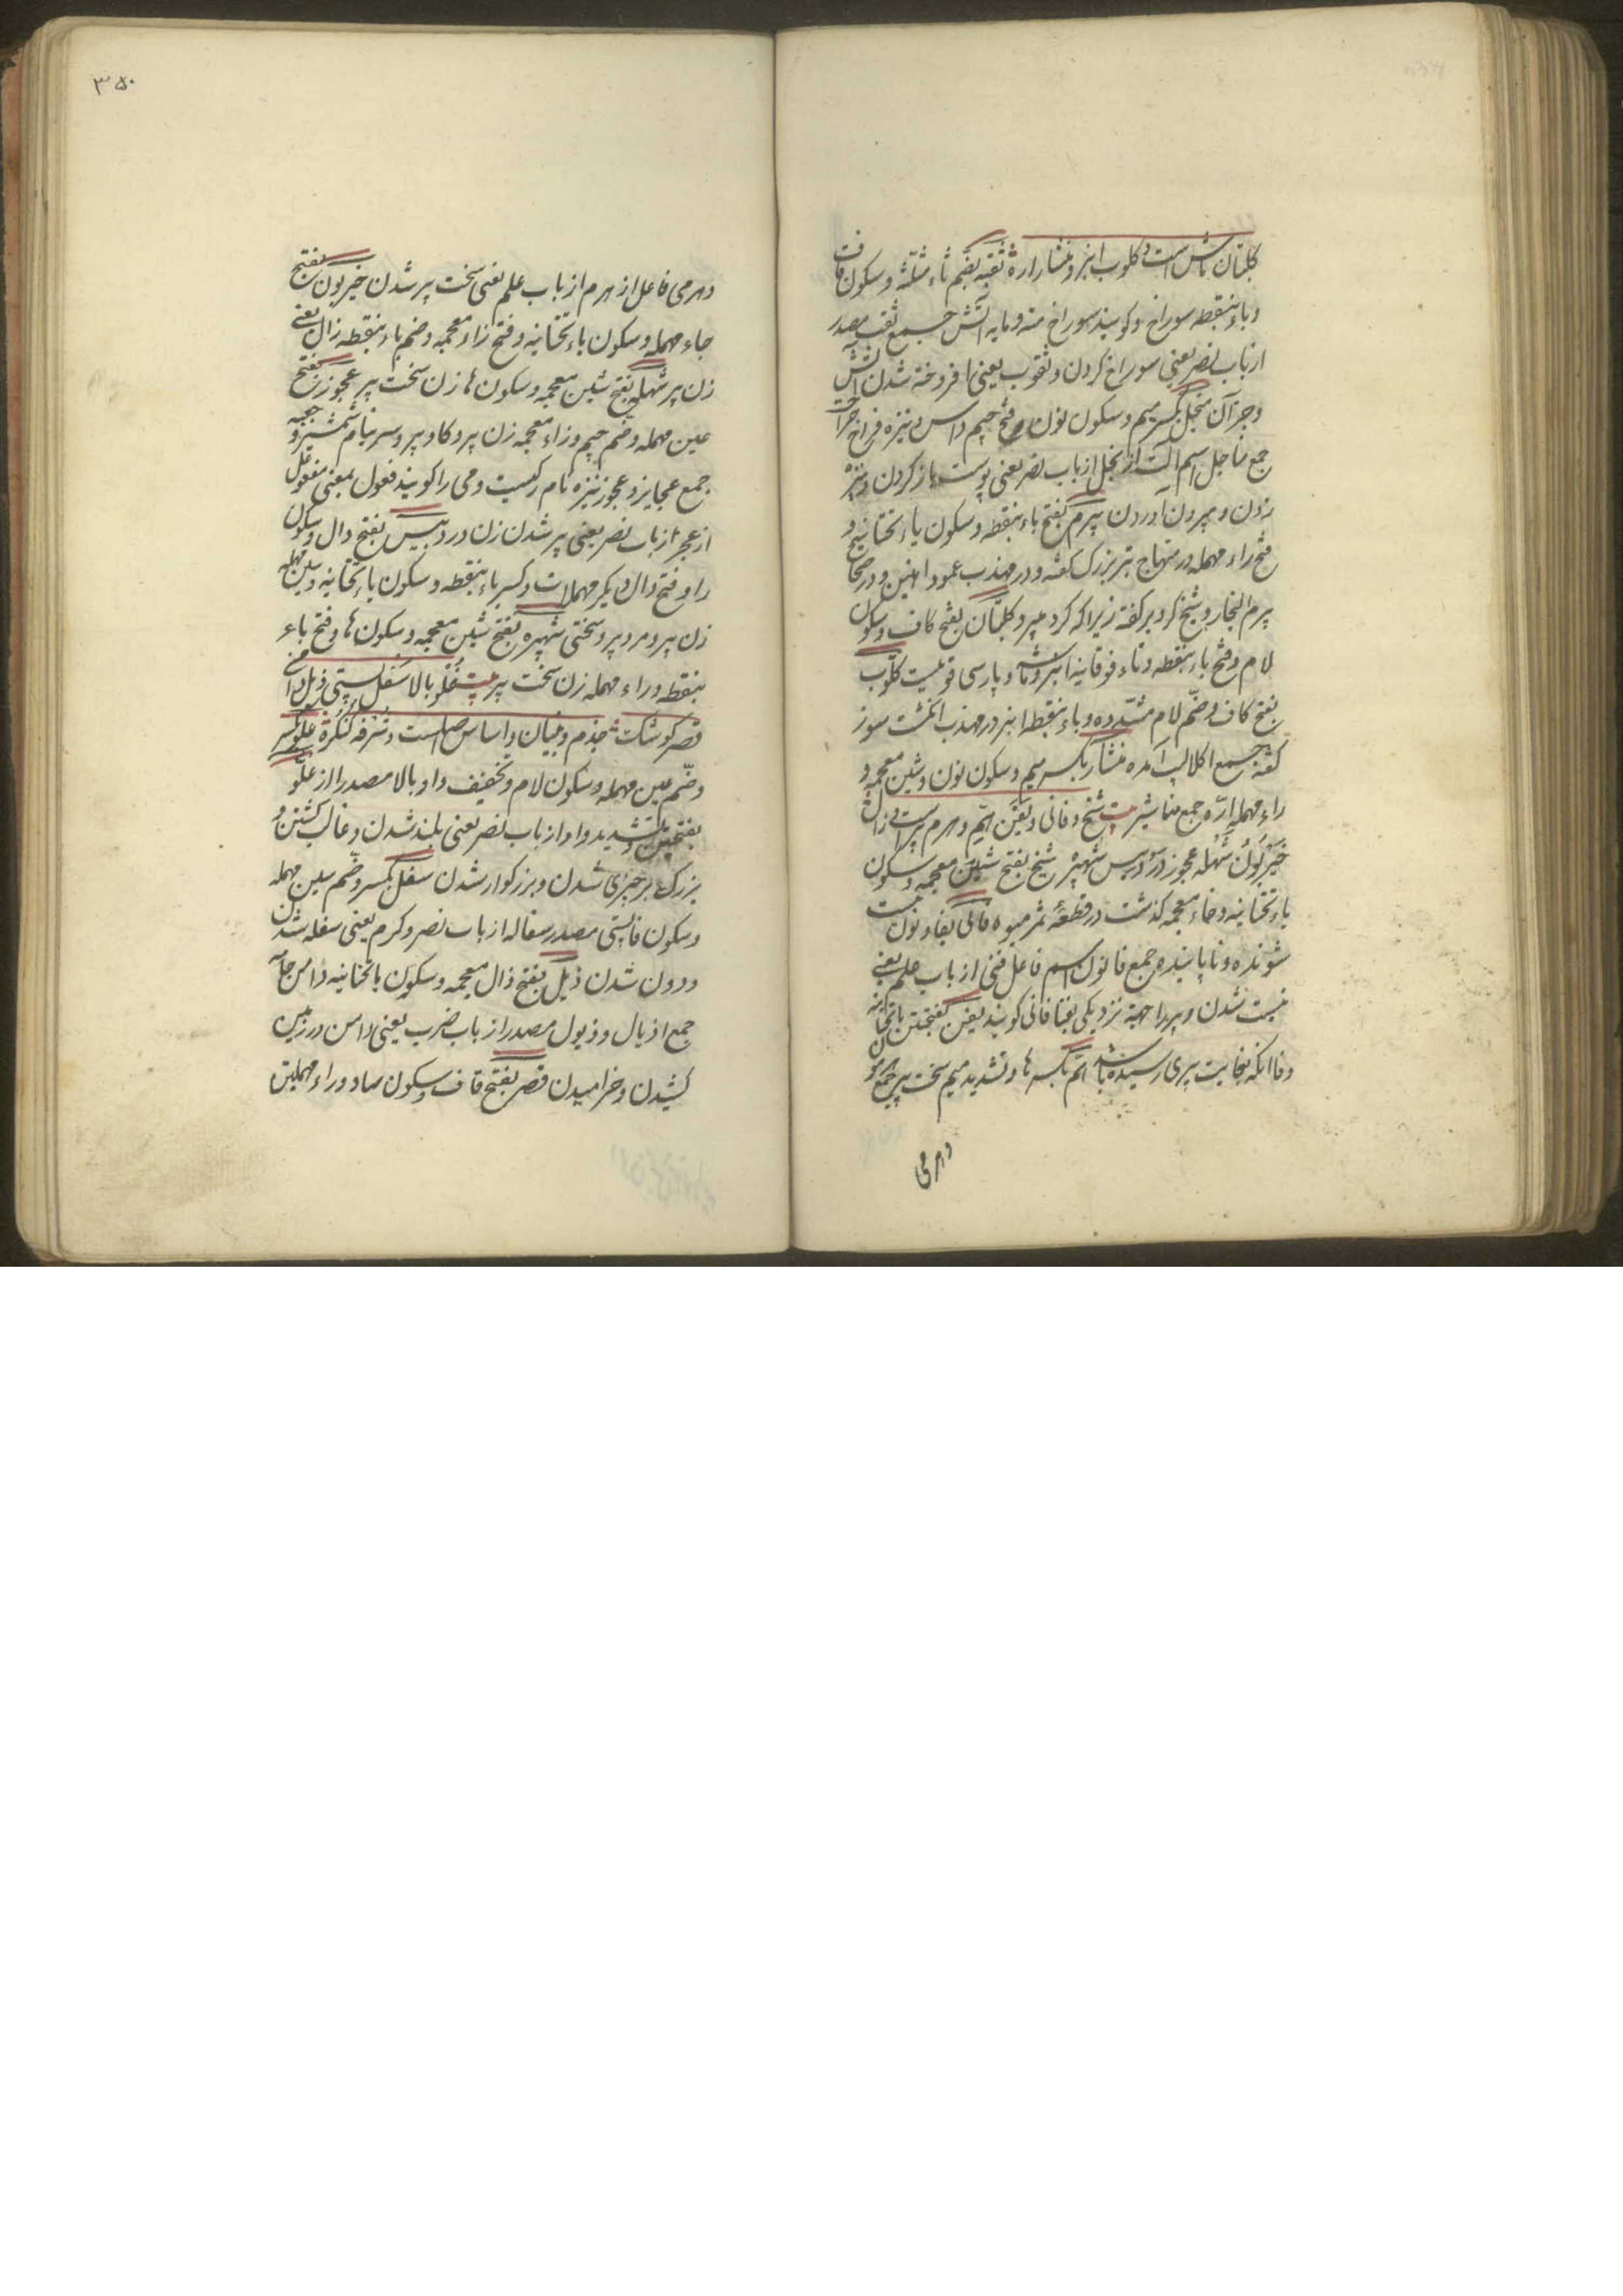 کلبتان ماش است و کلوب انبر و منشار اره ثقبه بضم ثاء مثلثه و سکون قاف
و باء بنقطه سوراخ و کویند سوراخ مته و مایه آتش جمع ثقب مصدر
از باب نصر یعنی سوراخ کردن و ثقوب یعنی افروخته شدن آتش
و جز آن منجل بکسر میم و سکون نون و فتح جیم داس و نیزه فراخ جراحت
جمع مناجل اسم آلت از نجل از باب نصر یعنی پوست باز کردن و نیزه
زدن و بیرون آوردن بیرم بفتح باء بنقطه و سکون یاء تختانیه و
فتح راء مهمله در منهاج تبر بزرک کفته و در مهذب عمود آهنین و در صحاح
بیرم النجار و شیخ کرد بر کفته زیرا که کرد میبرد کلبتان بفتح کاف و سکون
لام و فتح باء بنقطه و تاء فوقانیه انبر و ماشه و پارسی قومیست کلوب
بفتح کاف و ضم لام مشدده و باء بنقطه انبر در مهذب انکشت سوز
کفته جمع اکلالیب آمده منشار بکسر میم و سکون نون و شین معجمه و
راء مهمله اره جمع مناشیر بیت شیخ و فانی و یفن اهم و هرم پیر است زال
حیزبون شهله عجوز دردبیس شهبره شیخ بفتح شین معجمه و سکون
یاء تختانیه و خاء معجمه کذشت در قطعه ثمر میوه فانی بفا و نون نیست
شونده و ناپاینده جمع فانون اسم فاعل فنی از باب علم یعنی
نیست شدن و پیر را جهة نزدیکی بفنا فانی کویند یفن بفتحتین یاء تختانیه
و فا آنکه بغایت پیری رسیده باشد اهم بکسر ها و تشدید میم سخت پیر جمع
وهرمی
۳۵۰
وهرمی فاعل از هرم از باب علم یعنی سخت پیر شدن حیزبون بفتح
حاء مهمله و سکون یاء تختانیه و فتح زاء معجمه و ضم باء بنقطه زال یعنی
زن پیر شهله بفتح شین معجمه و سکون ها زن سخت پیر عجوز بفتح
عین مهمله و ضم جیم و زاء معجمه زن پیر و کاو پیر و سر نیام شمشیر و جعبه
جمع عجایز و عجوز نیزه نام رکیست و می را کویند فعول بمعنی مفعول
از عجز از باب نصر یعنی پیر شدن زن دردبیس بفتح دال و سکون
را و فتح دال دیکر مهملات و کسر باء بنقطه و سکون یاء تختانیه و سین مهمله
زن پیر و مرد پیر و سختی شهبره بفتح شین معجمه و سکون ها و فتح باء
بنقطه و راء مهمله زن سخت پیر بیت علو بالا سفل پستی ذیل دامن
قصر کوشک جذم و بنیان و اساس اصلست و شرفه کنکره علو بکسر
و ضم عین مهمله و سکون لام و تخفیف واو بالا مصدر از علو
بضمتین و تشدید واو از باب نصر یعنی بلند شدن و غالب کشتن و
بزرک بر چیزی شدن و بزرکوار شدن سفل بکسر و ضم سین مهمله
و سکون فا پستی مصدر سفاله از باب نصر و کرم یعنی سفله شدن
و دون شدن ذیل بفتح ذال معجمه و سکون یا تختانیه دامن جامه
جمع اذیال و ذیول مصدر از باب ضرب یعنی دامن در زمین
کشیدن و خرامیدن قصر بفتح قاف و سکون صاد و راء مهملتین